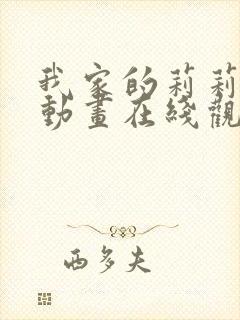 我家的莉莉
動畫在綫觀
西多夫